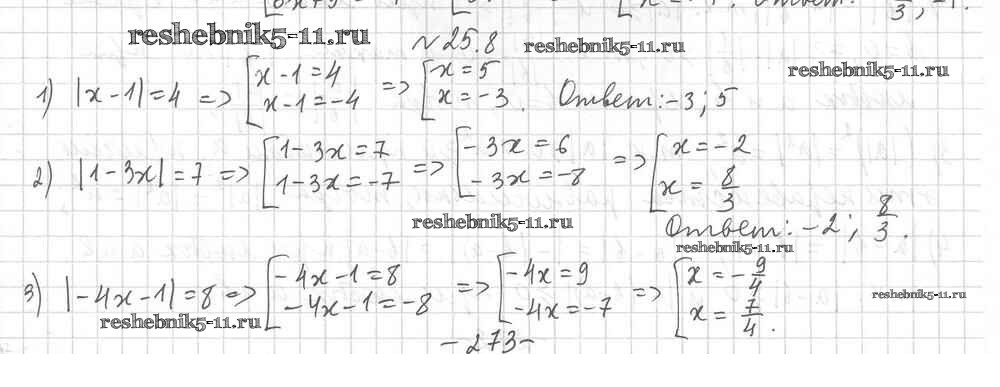 reshebnik5-11.ru № 25.8 reshebnik5-11.ru
reshebnik5-11.ru
1) |x-1|=4 => [x-1=4 x-1=-4 => [x=5 x=-3. Ответ: -3; 5
2) |1-3x|=7 => [1-3x=7 1-3x=-7 => [-3x=6 -3x=-8 => [x=-2 x=8/3
reshebnik5-11.ru
Ответ: -2; 8/3.
reshebnik5-11.ru
3) |-4x-1|=8 => [-4x-1=8 -4x-1=-8 => [-4x=9 -4x=-7 => [x=-9/4 x=7/4.
reshebnik5-11.ru
reshebnik5-11.ru
-273-